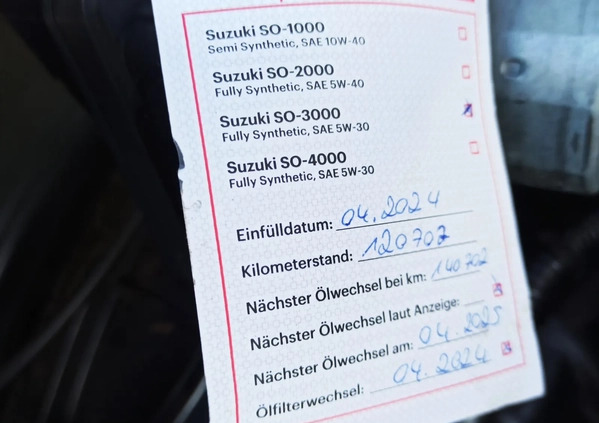 Suzuki SO-1000
Semi Synthetic, SAE 10W-40
Suzuki SO-2000
Fully Synthetic, SAE 5W-40
Suzuki SO-3000
Fully Synthetic, SAE 5W-30
Suzuki SO-4000
Fully Synthetic, SAE 5W-30
Einfülldatum: 04.2024
Kilometerstand: 120702
Nächster Ölwechsel bei km: 140702
Nächster Ölwechsel laut Anzeige:
Nächster Ölwechsel am: 04.2025
Ölfilterwechsel: 04.2024